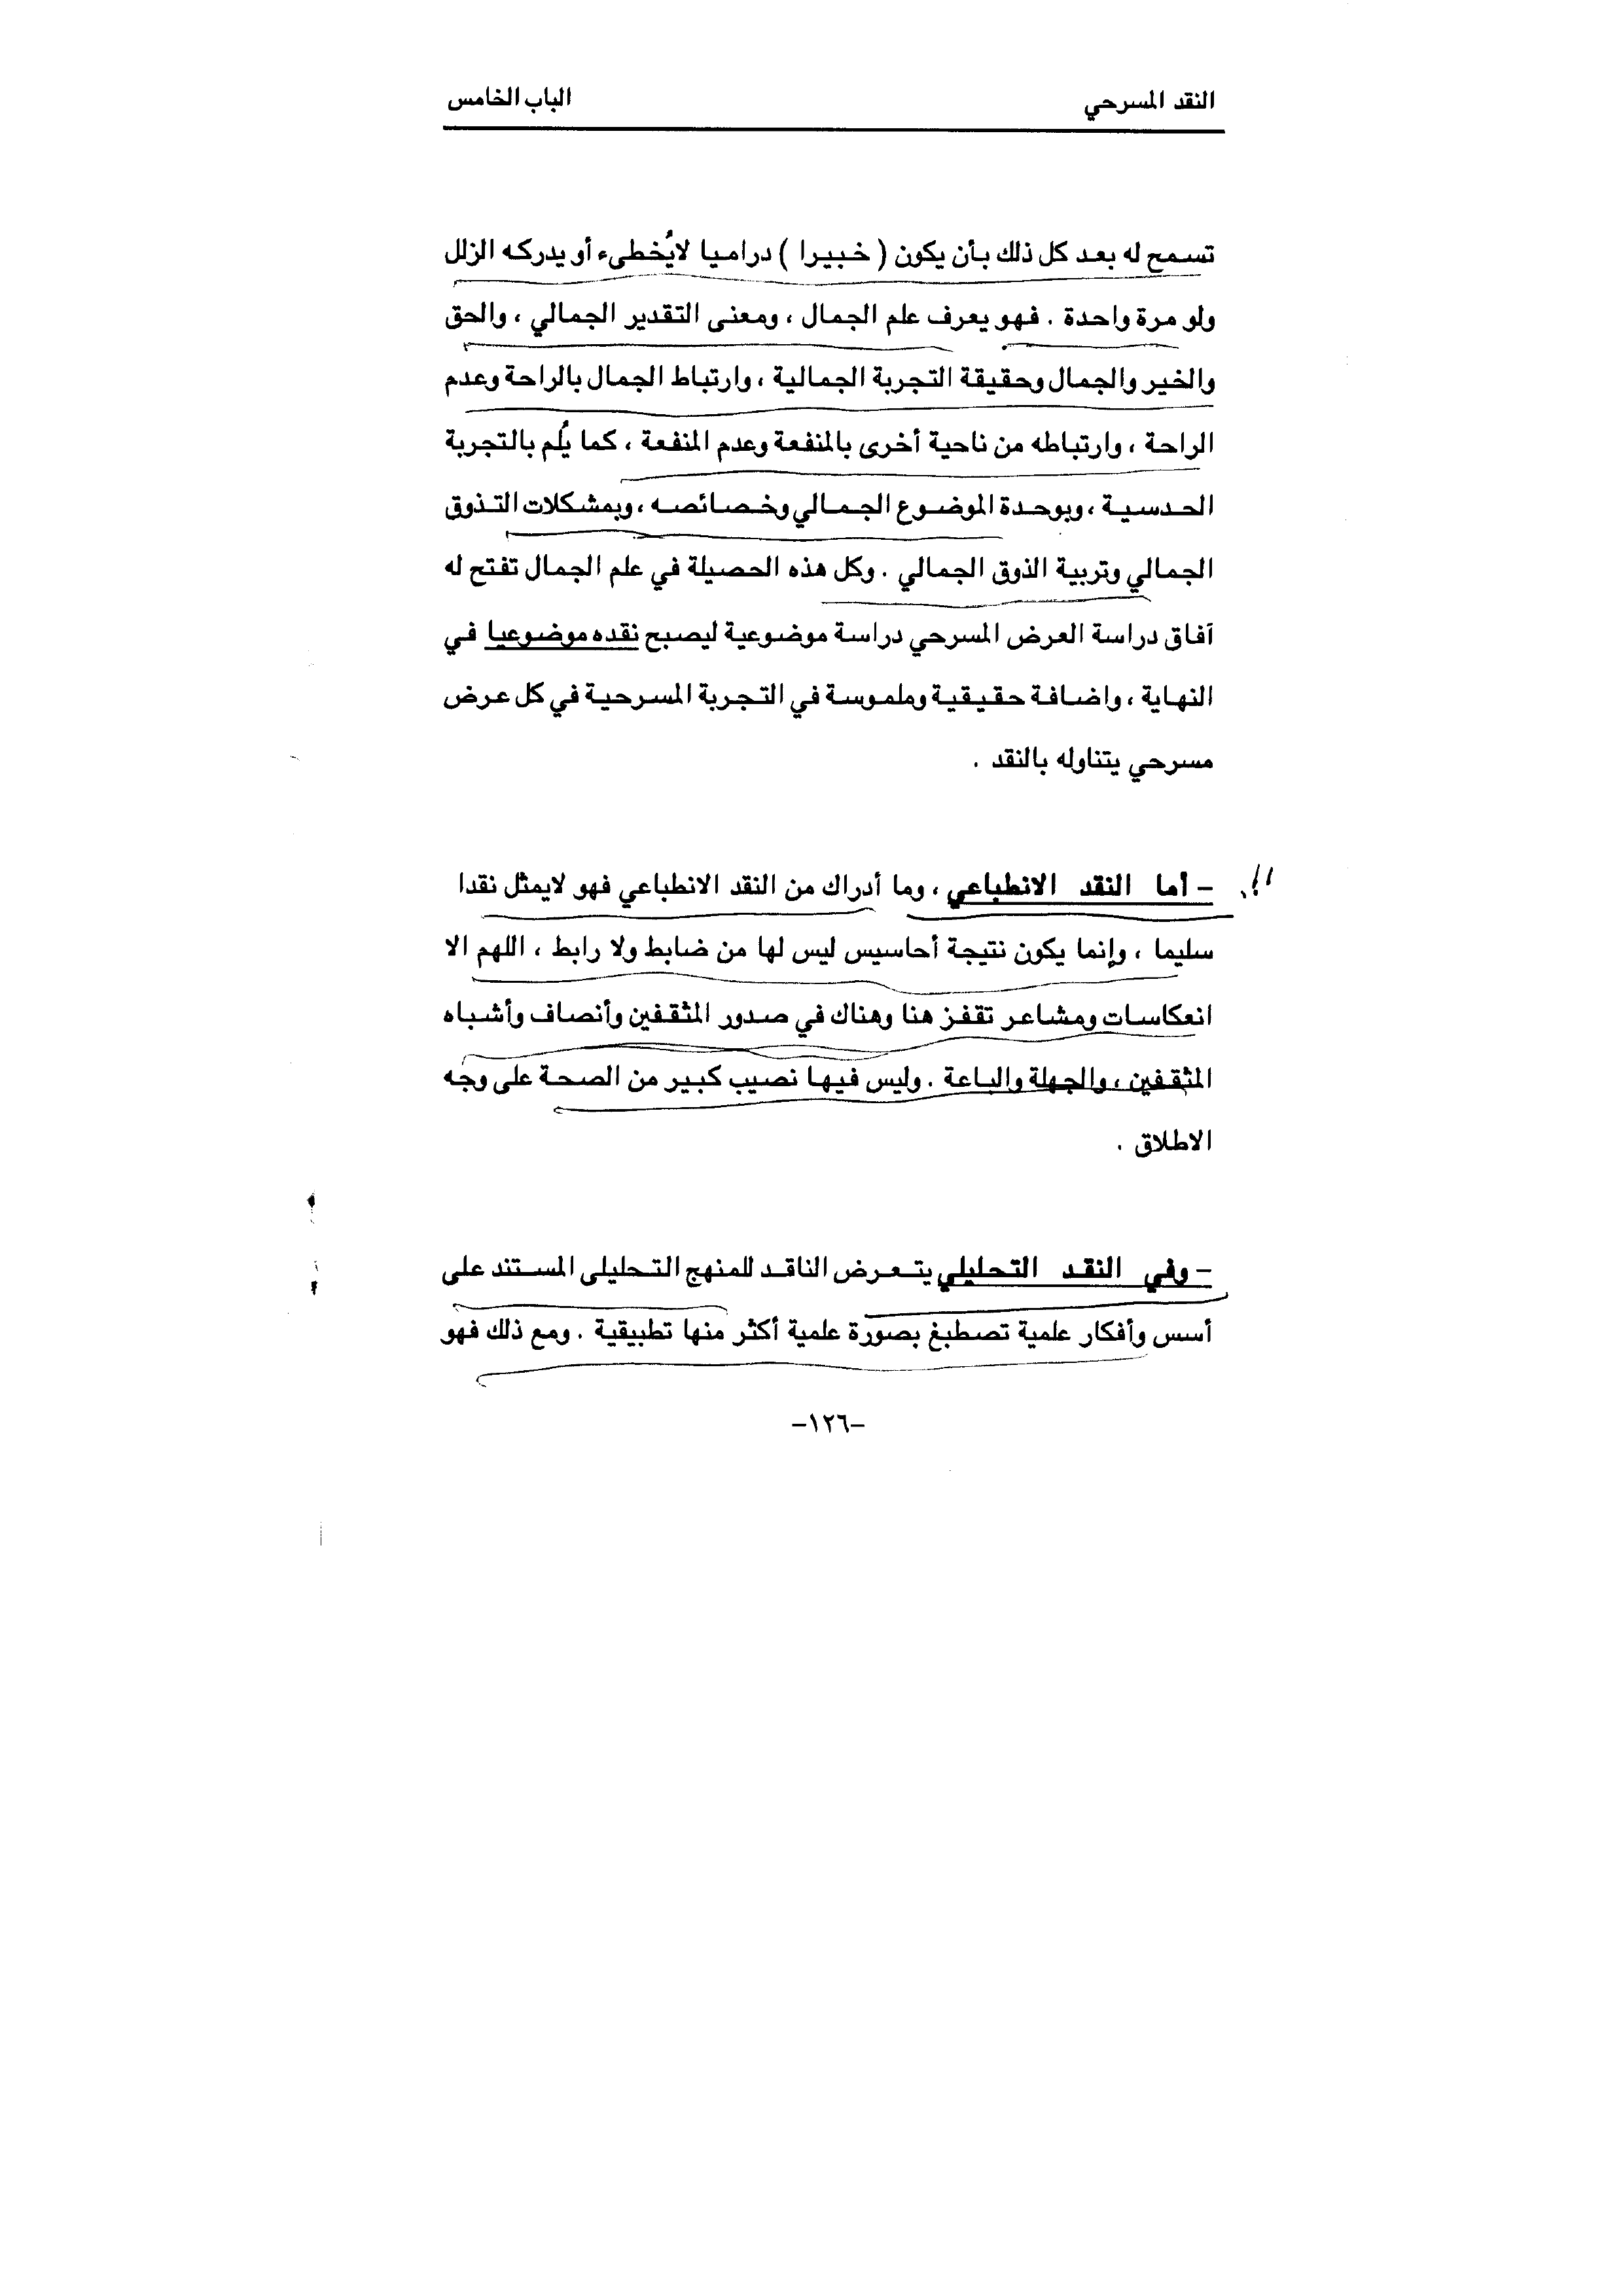 النقد المسرحي
الباب الخامس
تسمح له بعد كل ذلك بأن يكون ( خبيرا ) دراميا لايُخطىء أو يدركه الزلل
ولو مرة واحدة . فهو يعرف علم الجمال ، ومعنى التقدير الجمالي ، والحق
والخير والجمال وحقيقة التجربة الجمالية ، وارتباط الجمال بالراحة وعدم
الراحة ، وارتباطه من ناحية أخرى بالمنفعة وعدم المنفعة ، كما يُلم بالتجربة
الحدسية ، وبوحدة الموضوع الجمالي وخصائصه ، وبمشكلات التذوق
الجمالي وتربية الذوق الجمالي . وكل هذه الحصيلة في علم الجمال تفتح له
آفاق دراسة العرض المسرحي دراسة موضوعية ليصبح نقده موضوعيا في
النهاية ، واضافة حقيقية وملموسة في التجربة المسرحية في كل عرض
مسرحي يتناوله بالنقد .
– أما النقد الانطباعي ، وما أدراك من النقد الانطباعي فهو لايمثل نقدا
سليما ، وإنما يكون نتيجة أحاسيس ليس لها من ضابط ولا رابط ، اللهم الا
انعكاسات ومشاعر تقفز هنا وهناك في صدور المثقفين وأنصاف وأشباه
المثقفين ، والجهلة والباعة . وليس فيها نصيب كبير من الصحة على وجه
الاطلاق .
– وفي النقد التحليلي يتعرض الناقد للمنهج التحليلى المستند على
أسس وأفكار علمية تصطبغ بصورة علمية أكثر منها تطبيقية . ومع ذلك فهو
–١٢٦–